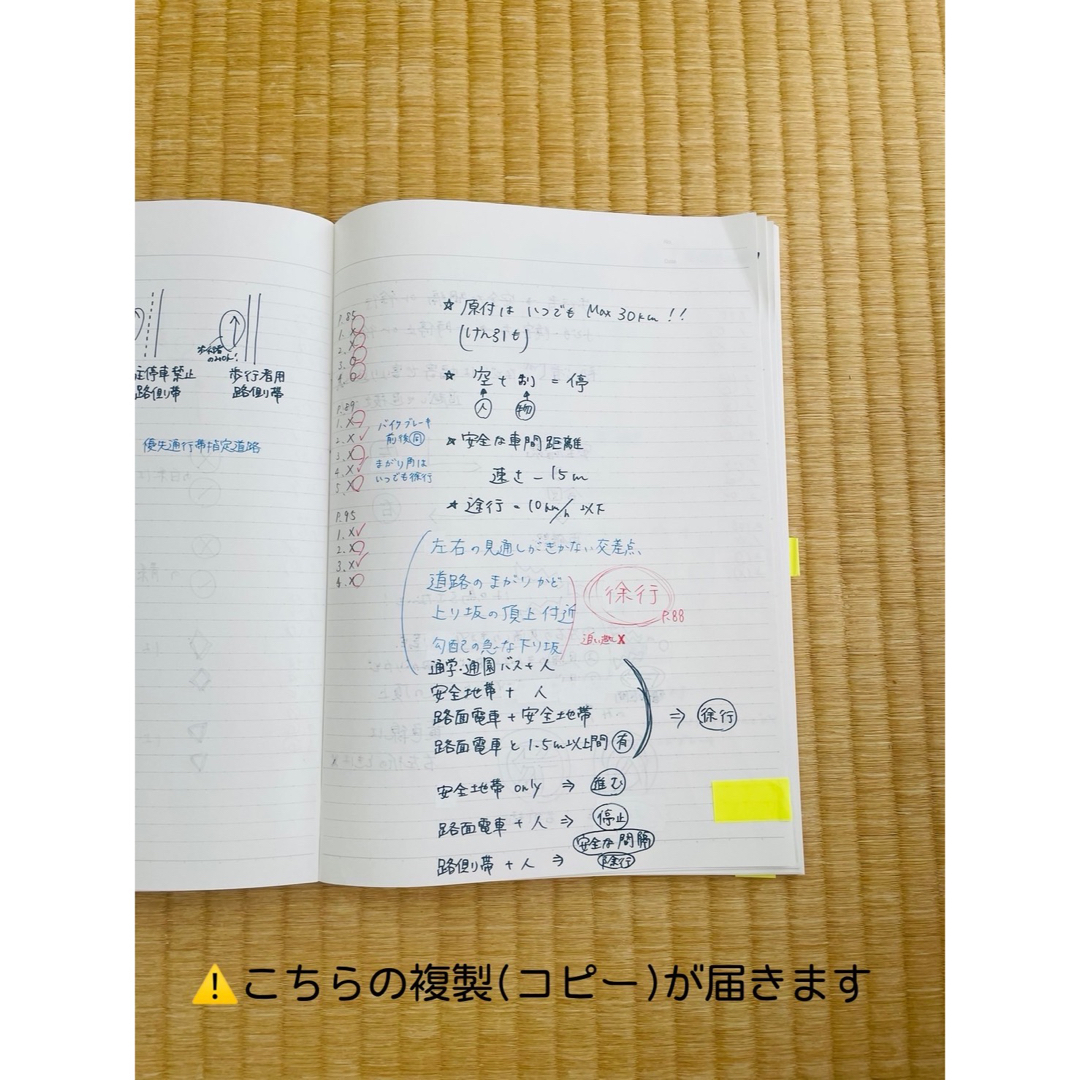 停車禁止
路側帯
歩行者用
路側帯
優先通行帯指定道路
P.85
1. X
2. X
3.
4.
P.89
1. X
2. X
3. X
4. X
5. X
バイクブレーキ
前後同
まがり角は
いつでも徐行
P.95
1. X
2. X
3. X
4. X
☆ 原付は いつでも Max 30km!!
(けん引も)
☆ 空 も 割 = 停
人 物
☆安全な車間距離
速さ - 15m
☆ 途行 = 10km/h 以下
左右の見通しがきかない交差点、
道路のまがりかど
上り坂の頂上付近
勾配の急な下り坂
徐行
P.88
追い越しX
通学・通園バス+人
安全地帯 + 人
路面電車+安全地帯
路面電車と1.5m以上間有
⇒ 徐行
安全地帯 only ⇒ 進む
路面電車 + 人 ⇒ 停止
安全な間隔
路側帯 + 人 ⇒ 徐行
⚠️こちらの複製(コピー)が届きます